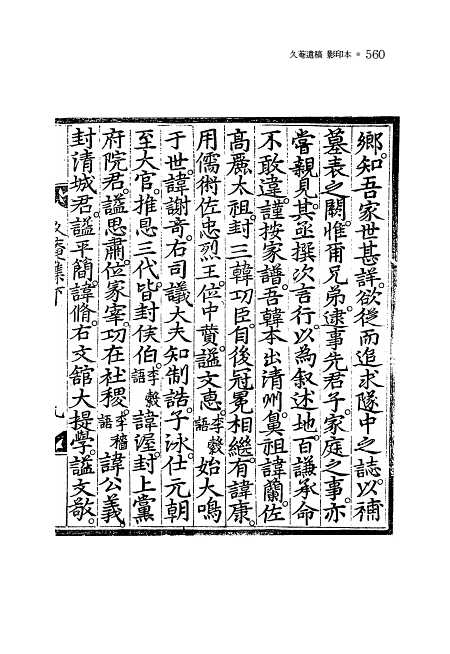 久菴遺稿 影印本 ● 560
鄉。知吾家世甚詳。欲從而追求隧中之誌。以補
墓表之闕。惟爾兄弟。逮事先君子。家庭之事。亦
嘗親見。其亟撰次言行。以為叙述地。百謙承命
不敢違。謹按家譜。吾韓本出淸州。鼻祖諱蘭。佐
高麗太祖。封三韓功臣。自後冠冕相繼。有諱康。
用儒術佐忠烈王。位中贊。謚文惠。李穀語 始大鳴
于世。諱謝奇。右司議大夫知制誥。子泳。仕元朝
至大官。推恩三代。皆封侯伯。李穀語 諱渥。封上黨
府院君。謚思肅。位冢宰。功在社稷。李穡語 諱公義。
封清城君。謚平簡。諱脩。右文舘大提學。謚文敬。
久菴集下 九